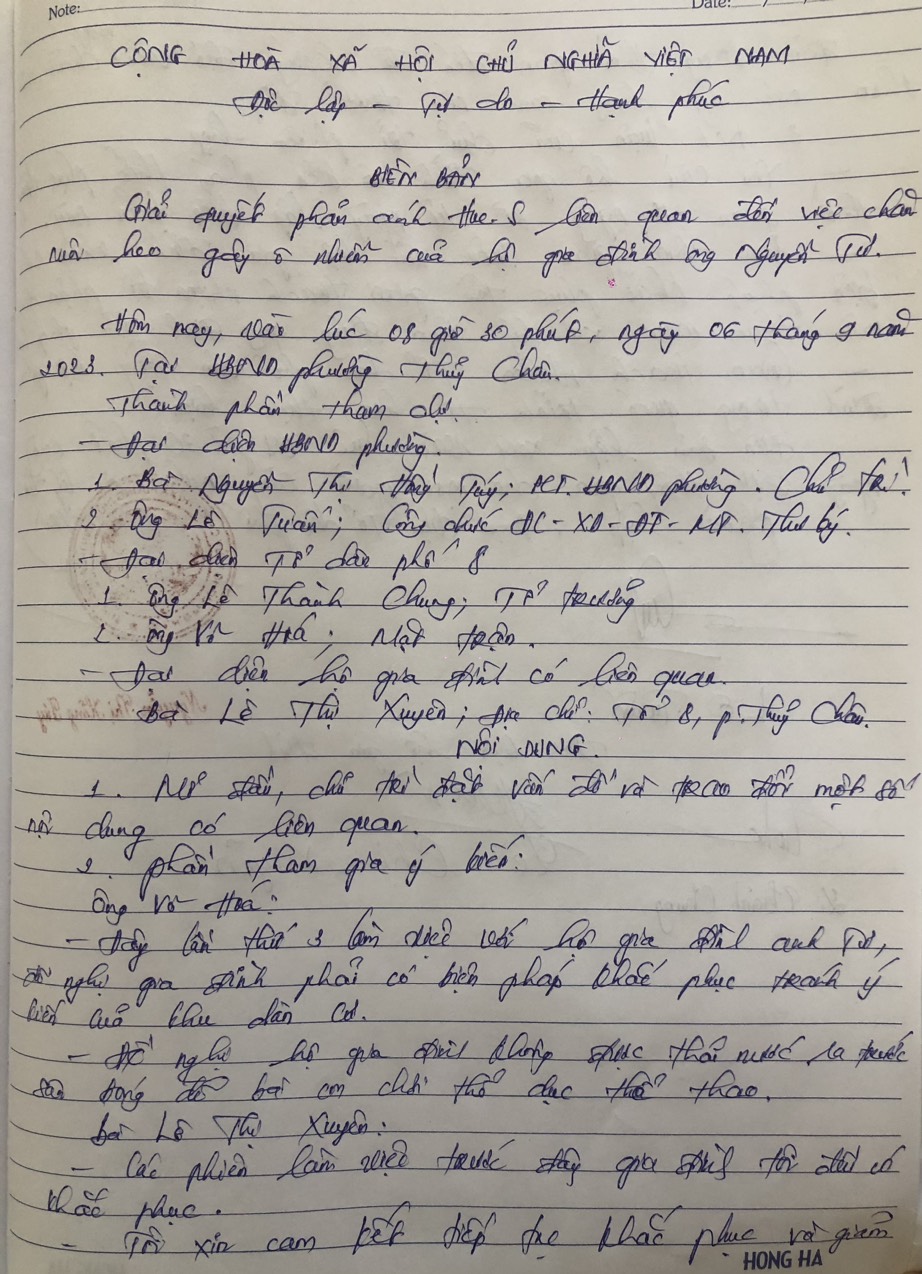 Note:
Date: / /
CỘNG HOÀ XÃ HỘI CHỦ NGHĨA VIỆT NAM
Độc lập - Tự do - Hạnh phúc
BIÊN BẢN
Giải quyết phản ánh Hue-S liên quan đến việc chăn
nuôi heo gây ô nhiễm của hộ gia đình ông Nguyễn Tư.
Hôm nay, vào lúc 08 giờ 30 phút, ngày 06 tháng 9 năm
2023. Tại UBND phường Thuỷ Châu.
Thành phần tham dự.
- Đại diện UBND phường.
1. Bà Nguyễn Thị Hồng Túy; PCT. UBND phường. Chủ trì.
2. Ông Lê Tuấn; Công chức ĐC-XD-ĐT-MT. Thư ký.
- Đại diện Tổ dân phố 8
1. Ông Lê Thành Chung; Tổ trưởng
2. Ông Võ Hoá; Mặt trận.
- Đại diện hộ gia đình có liên quan.
Bà Lê Thị Xuyên; Địa chỉ: Tổ 8, p. Thuỷ Châu.
NỘI DUNG.
1. Mở đầu, chủ trì đặt vấn đề và trao đổi một số
nội dung có liên quan.
2. Phần tham gia ý kiến:
Ông Võ Hoá:
- Đây lần thứ 3 làm việc với hộ gia đình anh Tư,
đề nghị gia đình phải có biện pháp khắc phục tránh ý
kiến của khu dân cư.
- Đề nghị hộ gia đình không được thải nước ra trước
sân bóng để bà con chơi thể dục thể thao.
Bà Lê Thị Xuyên:
- Các phiên làm việc trước đây gia đình tôi đã có
khắc phục.
- Tôi xin cam kết tiếp tục khắc phục và giảm
HONG HA